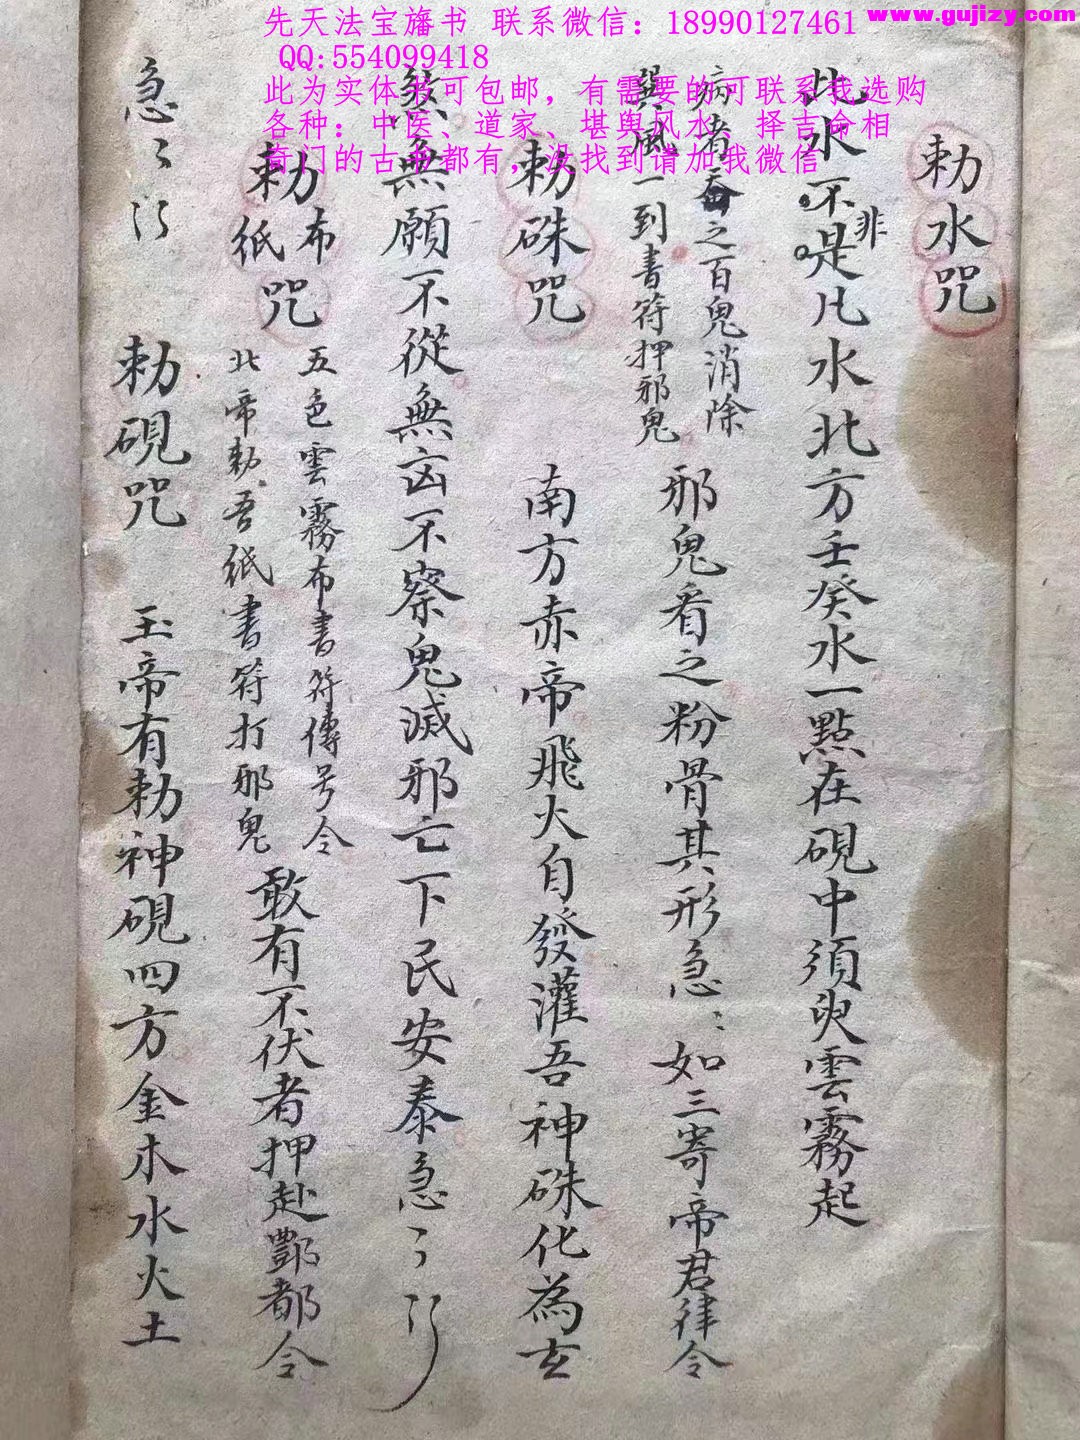 先天法宝旛书 联系微信：18990127461
QQ:554099418
此为实体书可包邮，有需要的可联系我选购
各种：中医、道家、堪舆风水、择吉命相
奇门的古书都有，没找到请加我微信
www.gujizy.com
勅水咒
此水不是凡水北方壬癸水一點在硯中須臾雲霧起
非
病者吞之百鬼消除
巽風一到書符押邪鬼
邪鬼看之粉骨其形急〻如三寄帝君律令
勅硃咒
南方赤帝飛火自發灌吾神硃化為玄
煞無願不從無凶不察鬼滅邪亡下民安泰急〻
勅布紙咒
五色雲霧布書符傳号令
北帝勅吾紙書符打邪鬼
敢有不伏者押赴酆都令
急〻
勅硯咒
玉帝有勅神硯四方金木水火土